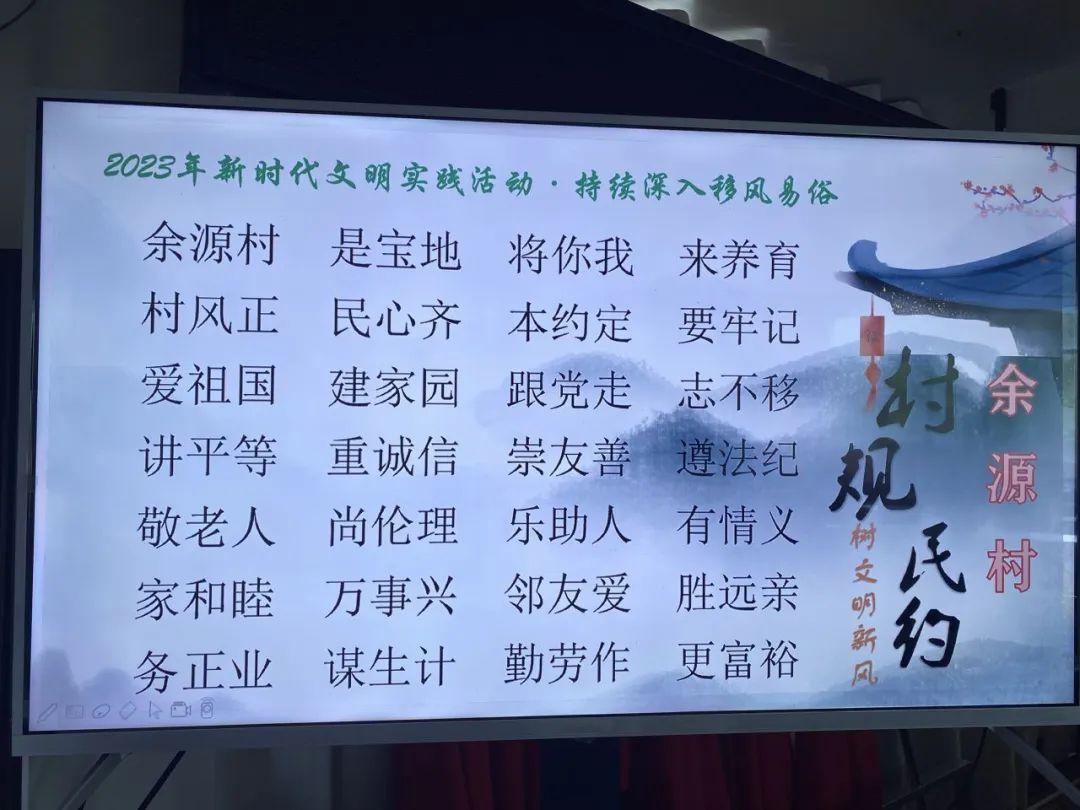 2023年新时代文明实践活动·持续深入移风易俗
余源村 是宝地 将你我 来养育
村风正 民心齐 本约定 要牢记
爱祖国 建家园 跟党走 志不移
讲平等 重诚信 崇友善 遵法纪
敬老人 尚伦理 乐助人 有情义
家和睦 万事兴 邻友爱 胜远亲
务正业 谋生计 勤劳作 更富裕
余源村
村规民约
树文明新风